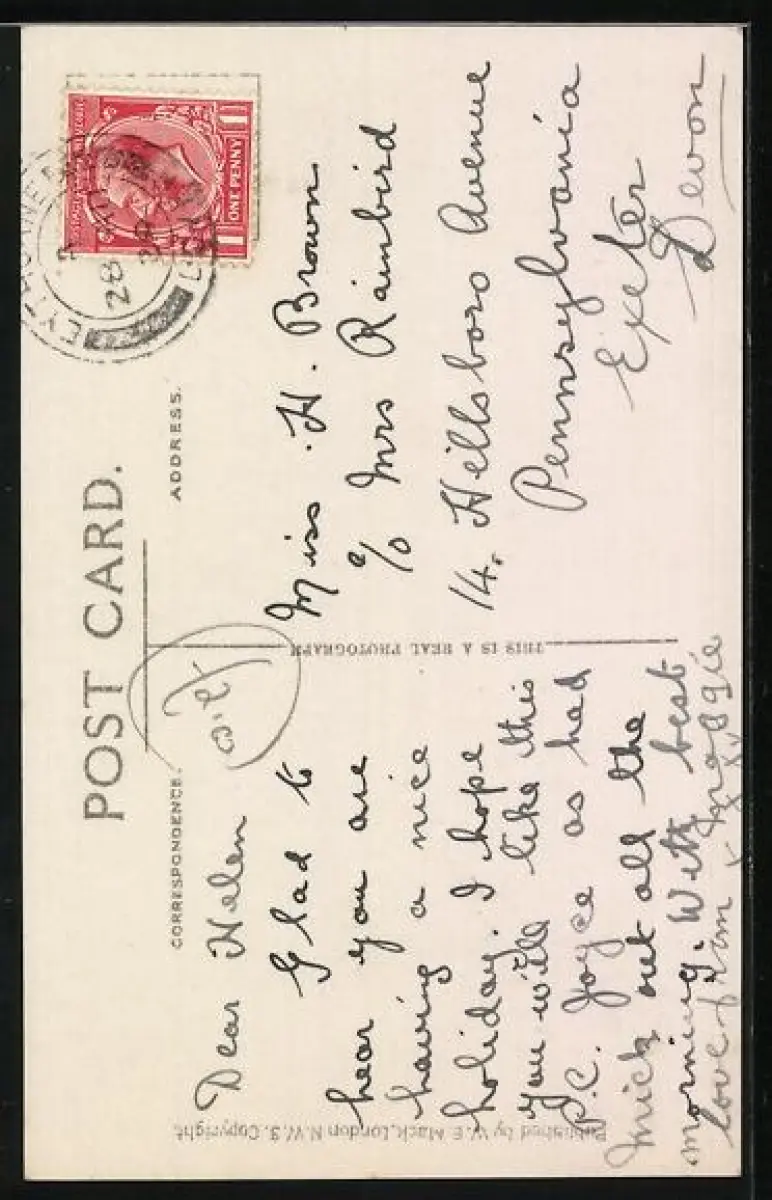 POST CARD.
CORRESPONDENCE.
ADDRESS.
Dear Helen
Glad to
hear you are
having a nice
holiday. I hope
you will like this
P.C. Joyce as had
Mick out all the
morning. With best
love from Maggie
x x x
THIS IS A REAL PHOTOGRAPH
Miss H. Brown
c/o Mrs Rainbird
14. Hillsboro Avenue
Pennsylvania
Exeter
Devon
ONE PENNY
1 1
28
Published by W. E. Mack, London N.W.3. Copyright.